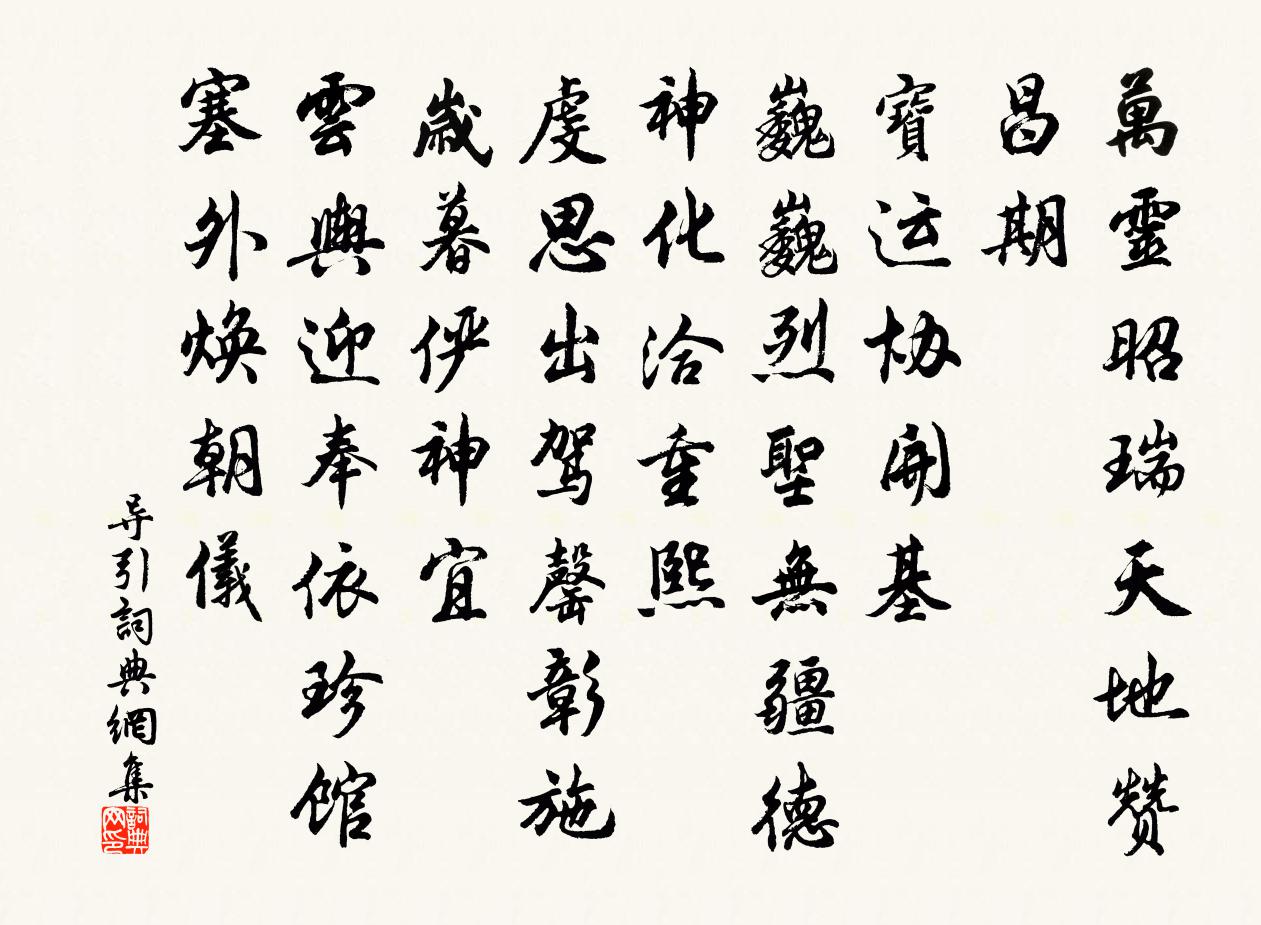 萬靈昭瑞天地赞
昌期
寶运协開基
巍巍烈聖無疆德
神化洽重熙
虔思出驾罄彰施
歲暮俨神宜
雲輿迎奉依珍馆
塞外焕朝儀
导引詞典網集
詞典网印